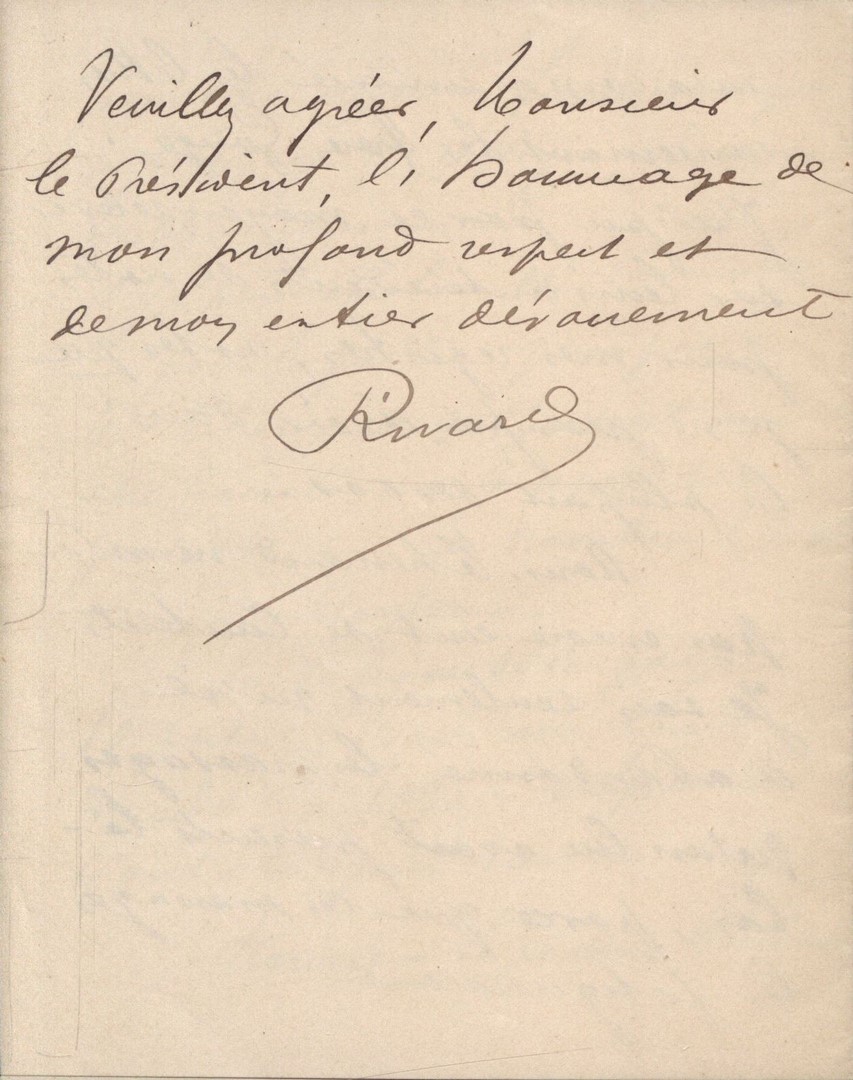 Veuillez agréer, Monsieur
le Président, l'hommage de
mon profond respect et
de mon entier dévouement